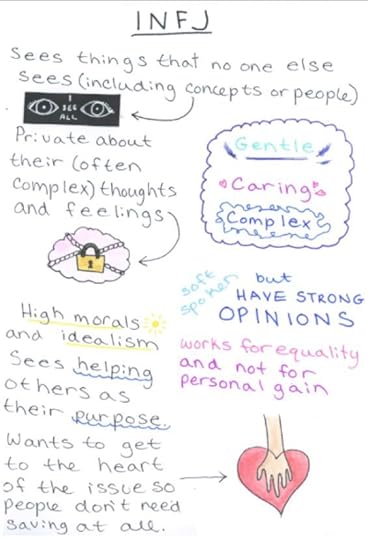 INFJ
Sees things that no one else
sees (including concepts or people)
I
SEE
ALL
Private about
their (often
complex) thoughts
and feelings
Gentle
Caring
Complex
soft
spoken
but
HAVE STRONG
OPINIONS
High morals
and idealism
Sees helping
others as
their purpose.
works for equality
and not for
personal gain
Wants to get
to the heart
of the issue so
people don't need
saving at all.